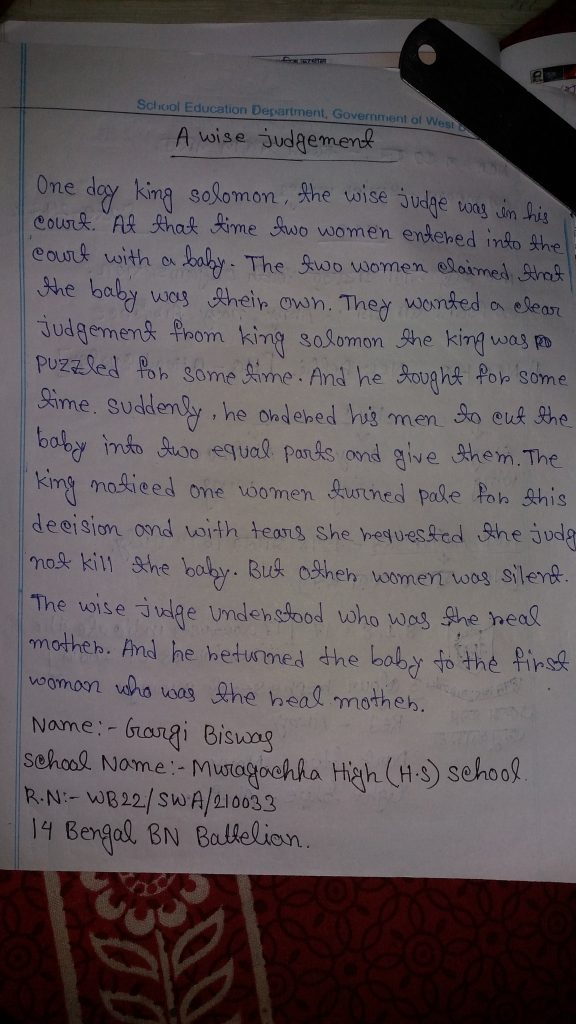 School Education Department, Government of West
A wise judgement
One day king solomon, the wise judge was in his
court. At that time two women entered into the
court with a baby. The two women claimed that
the baby was their own. They wanted a clear
judgement from king solomon the king was
puzzled for some time. And he tought for some
time. suddenly, he ordered his men to cut the
baby into two equal parts and give them. The
king noticed one women turned pale for this
decision and with tears she requested the judg
not kill the baby. But other women was silent.
The wise judge understood who was the real
mother. And he returned the baby to the first
woman who was the real mother.
Name:- Gargi Biswas
school Name:- Muragachha High (H.S) school.
R.N:- WB22/SWA/210033
14 Bengal BN Battelian.